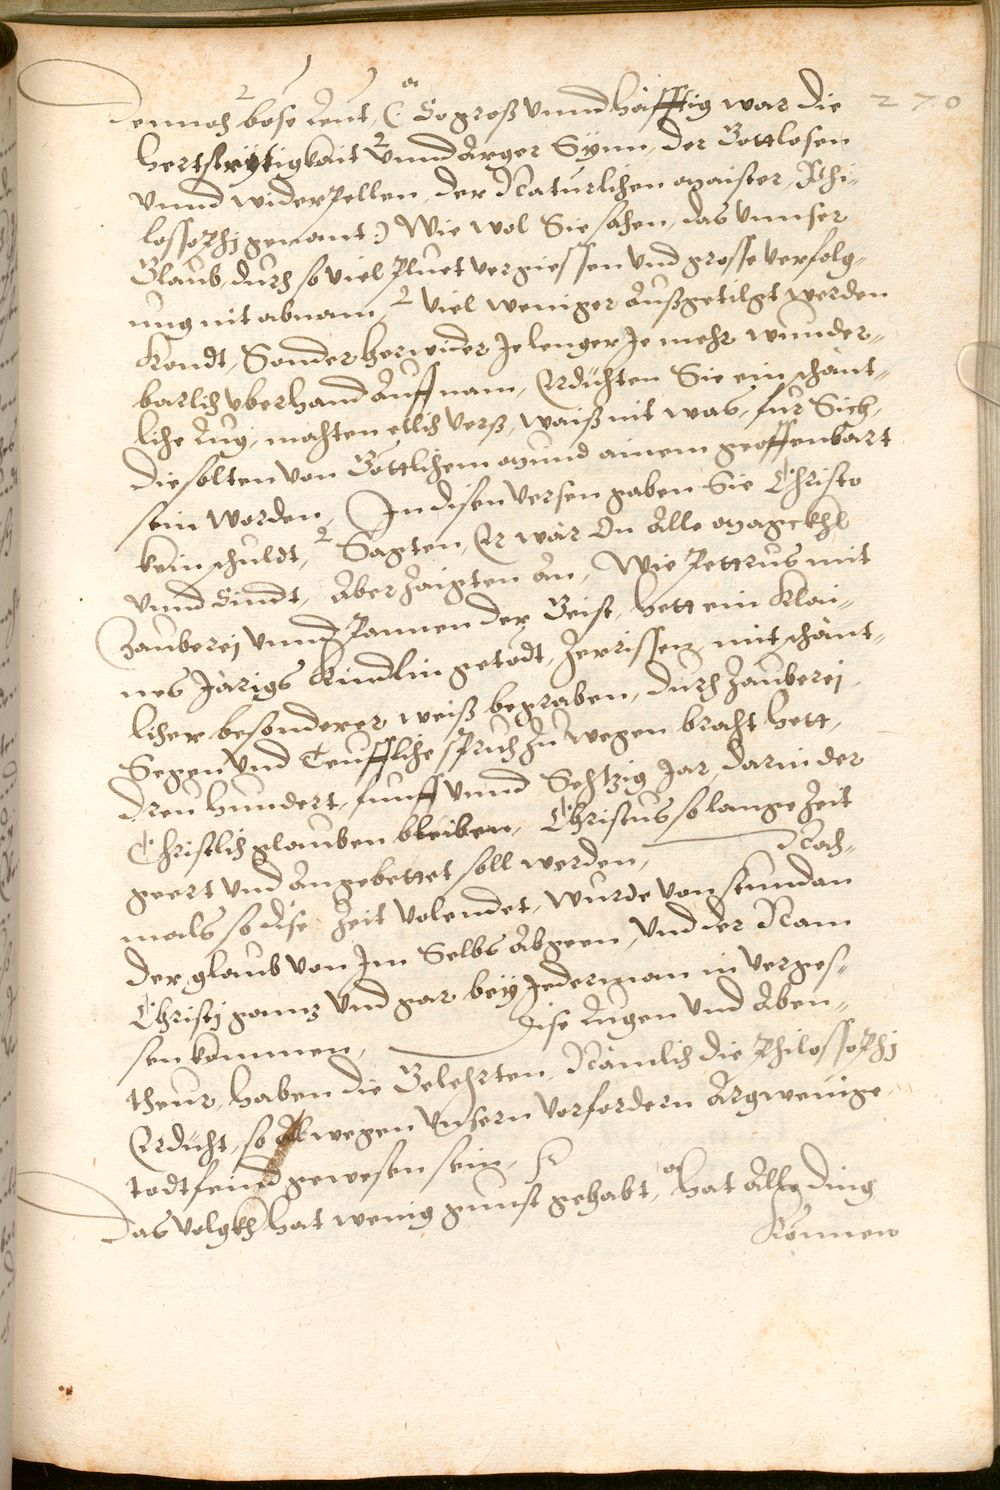 270
dennoch böse Leut, (: So groß vnnd häfftig war die
hertstrytigkait vnnd Arger Synn, der Gottlosen
vnnd widerpellen, der Naturlichen maister, Phi-
lossophj genant :) Wie wol Sie sahen, das vnnser
Glaub, durch so viel pluet vergiessen vnd grosse verfolg-
ung nit abnam, viel weniger Außgetilgt werden
Kondt, Sonder herwider Je lenger Je mehr wunder-
barlich vberhand Auffnam, Erdichten Sie ein schänt-
liche Lug, machten etlich verß, waiß nit was, fur Sich,
die solten von Göttlichem mund ainem geoffenbart
sein worden, In disen versen gaben Sie Christo
kein schuldt, Sagten, Er wär On Alle magckhl
vnnd Sindt, Aber zaigten An, Wie Pettrus mit
Zauberej vnnd Pannen der Geist, hett ein Klai-
nes Järigs Kindlin getödt, zerrissen, mit schänt-
licher besonderer weiß begraben, durch Zauberej
Segen vnd Teufflische spruch zu wegen bracht hett,
dreu hundert, funff vnnd Sechtzig Jar, darin der
Christlich glauben bleiben, Christus so lange Zeit
geert vnd Angebettet soll werden, Nach-
mals so dise Zeit volendet, wurde von stundan
der glaub von Im Selbs Abgeen, vnd der Nam
Christj gannz vnd gar bey Jederman in verges-
sen kommen, Dise Lugen vnd Aben-
theur, haben die Gelehrten, Nämlich die Philossophj
Erdicht, so Allwegen vnsern vorfordern Argwenige
todtfeind gewesen sein,
Das volgkh hat wenig gunst gehabt, hat Alle ding
Können